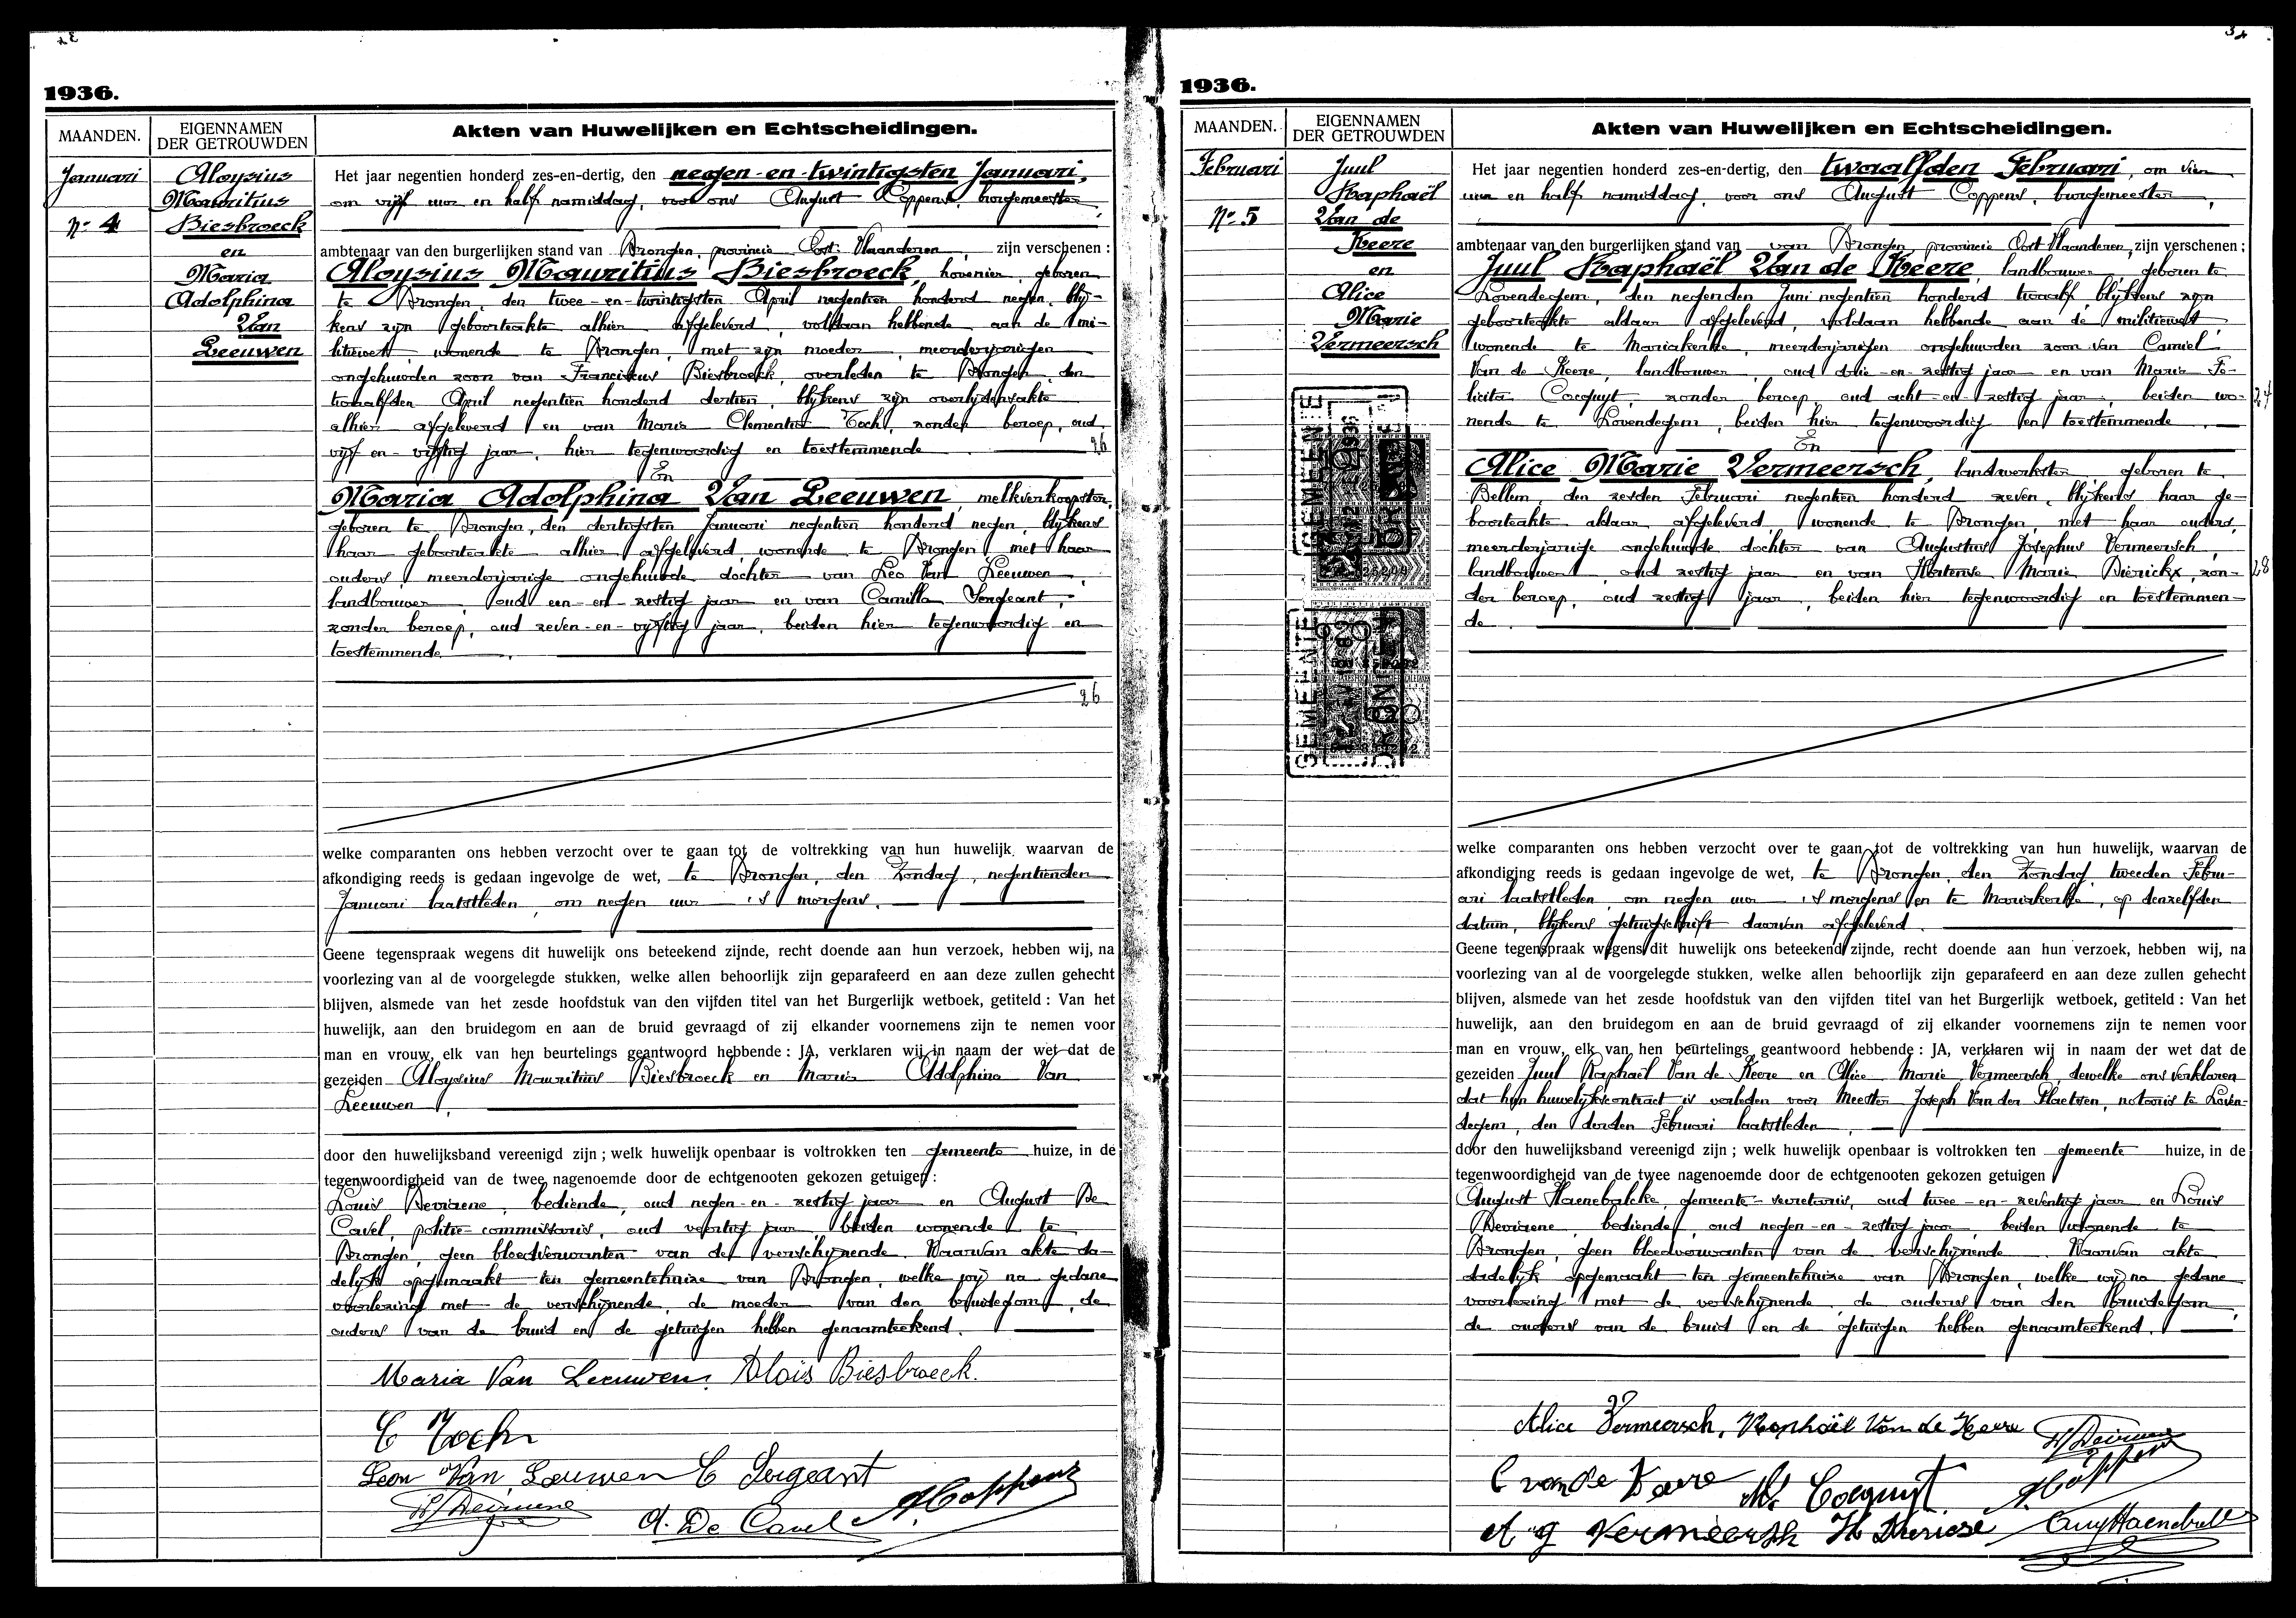 1936.
MAANDEN.
EIGENNAMEN
DER GETROUWDEN
Akten van Huwelijken en Echtscheidingen.
Januari
Nr 4
Aloysius
Mauritius
Biesbroeck
en
Maria
Adolphina
Van
Leeuwen
Het jaar negentien honderd zes-en-dertig, den negen-en-twintigsten Januari,
om vijf uur en half namiddag, voor ons August Coppens, burgemeester,
ambtenaar van den burgerlijken stand van Drongen, provincie Oost-Vlaanderen, zijn verschenen :
Aloysius Mauritius Biesbroeck, hovenier, geboren
te Drongen, den twee-en-twintigsten April negentien honderd negen, blij-
kens zijn geboorteakte alhier afgeleverd, voldaan hebbende aan de mi-
litiewet, wonende te Drongen, met zijn moeder, meerderjarigen
ongehuwden zoon van Franciscus Biesbroeck, overleden te Drongen, den
twaalfden April negentien honderd dertien, blijkens zijn overlijdensakte
alhier afgeleverd en van Marie Clementia Toch, zonder beroep, oud
vijf-en-vijftig jaar, hier tegenwoordig en toestemmende
26
En
Maria Adolphina Van Leeuwen, melkverkoopster,
geboren te Drongen, den dertigsten Januari negentien honderd negen, blijkens
haar geboorteakte alhier afgeleverd, wonende te Drongen, met haar
ouders, meerderjarige ongehuwde dochter van Leo Van Leeuwen,
landbouwer, oud een-en-zestig jaar en van Camilla Sergeant,
zonder beroep, oud zeven-en-vijftig jaar, beiden hier tegenwoordig en
toestemmende.
26
welke comparanten ons hebben verzocht over te gaan tot de voltrekking van hun huwelijk, waarvan de
afkondiging reeds is gedaan ingevolge de wet, te Drongen, den Zondag, negentienden
Januari laatstleden, om negen uur 's morgens.
Geene tegenspraak wegens dit huwelijk ons beteekend zijnde, recht doende aan hun verzoek, hebben wij, na
voorlezing van al de voorgelegde stukken, welke allen behoorlijk zijn geparafeerd en aan deze zullen gehecht
blijven, alsmede van het zesde hoofdstuk van den vijfden titel van het Burgerlijk wetboek, getiteld : Van het
huwelijk, aan den bruidegom en aan de bruid gevraagd of zij elkander voornemens zijn te nemen voor
man en vrouw, elk van hen beurtelings geantwoord hebbende : JA, verklaren wij in naam der wet dat de
gezeiden Aloysius Mauritius Biesbroeck en Maria Adolphina Van
Leeuwen,
door den huwelijksband vereenigd zijn ; welk huwelijk openbaar is voltrokken ten gemeente huize, in de
tegenwoordigheid van de twee nagenoemde door de echtgenooten gekozen getuigen :
Louis Deviaene, bediende, oud negen-en-zestig jaar en August De
Cavel, politie commissaris, oud veertig jaar, beiden wonende te
Drongen, geen bloedverwanten van de verschijnende. Waarvan akte da-
delijk opgemaakt ten gemeentehuize van Drongen, welke wij na gedane
voorlezing met de verschijnende, de moeder van den bruidegom, de
ouders van de bruid en de getuigen hebben genaamteekend.
Maria Van Leeuwen. Aloïs Biesbroeck.
C Toch
Leon Van Leeuwen C Sergeant
A. De Cavel A. Coppens
1936.
MAANDEN.
EIGENNAMEN
DER GETROUWDEN
Akten van Huwelijken en Echtscheidingen.
Februari
Nr 5
Juul
Raphaël
Van de
Keere
en
Alice
Marie
Vermeersch
GEMEENTE
DRONGEN
GEMEENTE
DRONGEN
Het jaar negentien honderd zes-en-dertig, den twaalfden Februari, om vier
uur en half namiddag, voor ons August Coppens, burgemeester,
ambtenaar van den burgerlijken stand van van Drongen, provincie Oost Vlaanderen, zijn verschenen :
Juul Raphaël Van de Keere, landbouwer, geboren te
Lovendegem, den negenden Juni negentien honderd twaalf, blijkens zijn
geboorteakte aldaar afgeleverd, voldaan hebbende aan de militiewet,
wonende te Mariakerke, meerderjarigen ongehuwden zoon van Camiel
Van de Keere, landbouwer, oud drie-en-zestig jaar en van Marie Fe-
licita Cocquyt, zonder beroep, oud acht-en-zestig jaar, beiden wo-
nende te Lovendegem, beiden hier tegenwoordig en toestemmende.
24
En
Alice Marie Vermeersch, landwerkster, geboren te
Bellem, den zesden Februari negentien honderd zeven, blijkens haar ge-
boorteakte aldaar afgeleverd, wonende te Drongen, met haar ouders,
meerderjarige ongehuwde dochter van Augustus Josephus Vermeersch,
landbouwer, oud zestig jaar en van Hortense Marie Dierickx, zon-
der beroep, oud zestig jaar, beiden hier tegenwoordig en toestemmen-
de.
28
welke comparanten ons hebben verzocht over te gaan tot de voltrekking van hun huwelijk, waarvan de
afkondiging reeds is gedaan ingevolge de wet, te Drongen, den Zondag, tweeden Febru-
ari laatstleden, om negen uur 's morgens en te Mariakerke, op denzelfden
datum, blijkens getuigschrift daarvan afgeleverd.
Geene tegenspraak wegens dit huwelijk ons beteekend zijnde, recht doende aan hun verzoek, hebben wij, na
voorlezing van al de voorgelegde stukken, welke allen behoorlijk zijn geparafeerd en aan deze zullen gehecht
blijven, alsmede van het zesde hoofdstuk van den vijfden titel van het Burgerlijk wetboek, getiteld : Van het
huwelijk, aan den bruidegom en aan de bruid gevraagd of zij elkander voornemens zijn te nemen voor
man en vrouw, elk van hen beurtelings geantwoord hebbende : JA, verklaren wij in naam der wet dat de
gezeiden Juul Raphaël Van de Keere en Alice Marie Vermeersch, dewelke ons verklaren
dat hun huwelijkscontract is verleden voor Meester Joseph Van der Plaetsen, notaris te Loven-
degem, den derden Februari laatstleden,
door den huwelijksband vereenigd zijn ; welk huwelijk openbaar is voltrokken ten gemeente huize, in de
tegenwoordigheid van de twee nagenoemde door de echtgenooten gekozen getuigen
August Haenebalcke, gemeente-secretaris, oud twee-en-zeventig jaar en Louis
Deviaene, bediende, oud negen-en-zestig jaar, beiden wonende te
Drongen, geen bloedverwanten van de verschijnende. Waarvan akte
dadelijk opgemaakt ten gemeentehuize van Drongen, welke wij na gedane
voorlezing met de verschijnende, de ouders van den bruidegom,
de ouders van de bruid en de getuigen hebben genaamteekend.
Alice Vermeersch, Raphaël Van de Keere
C van de Keere M. Cocquyt A. Coppens
A g Vermeersch H Dierickse